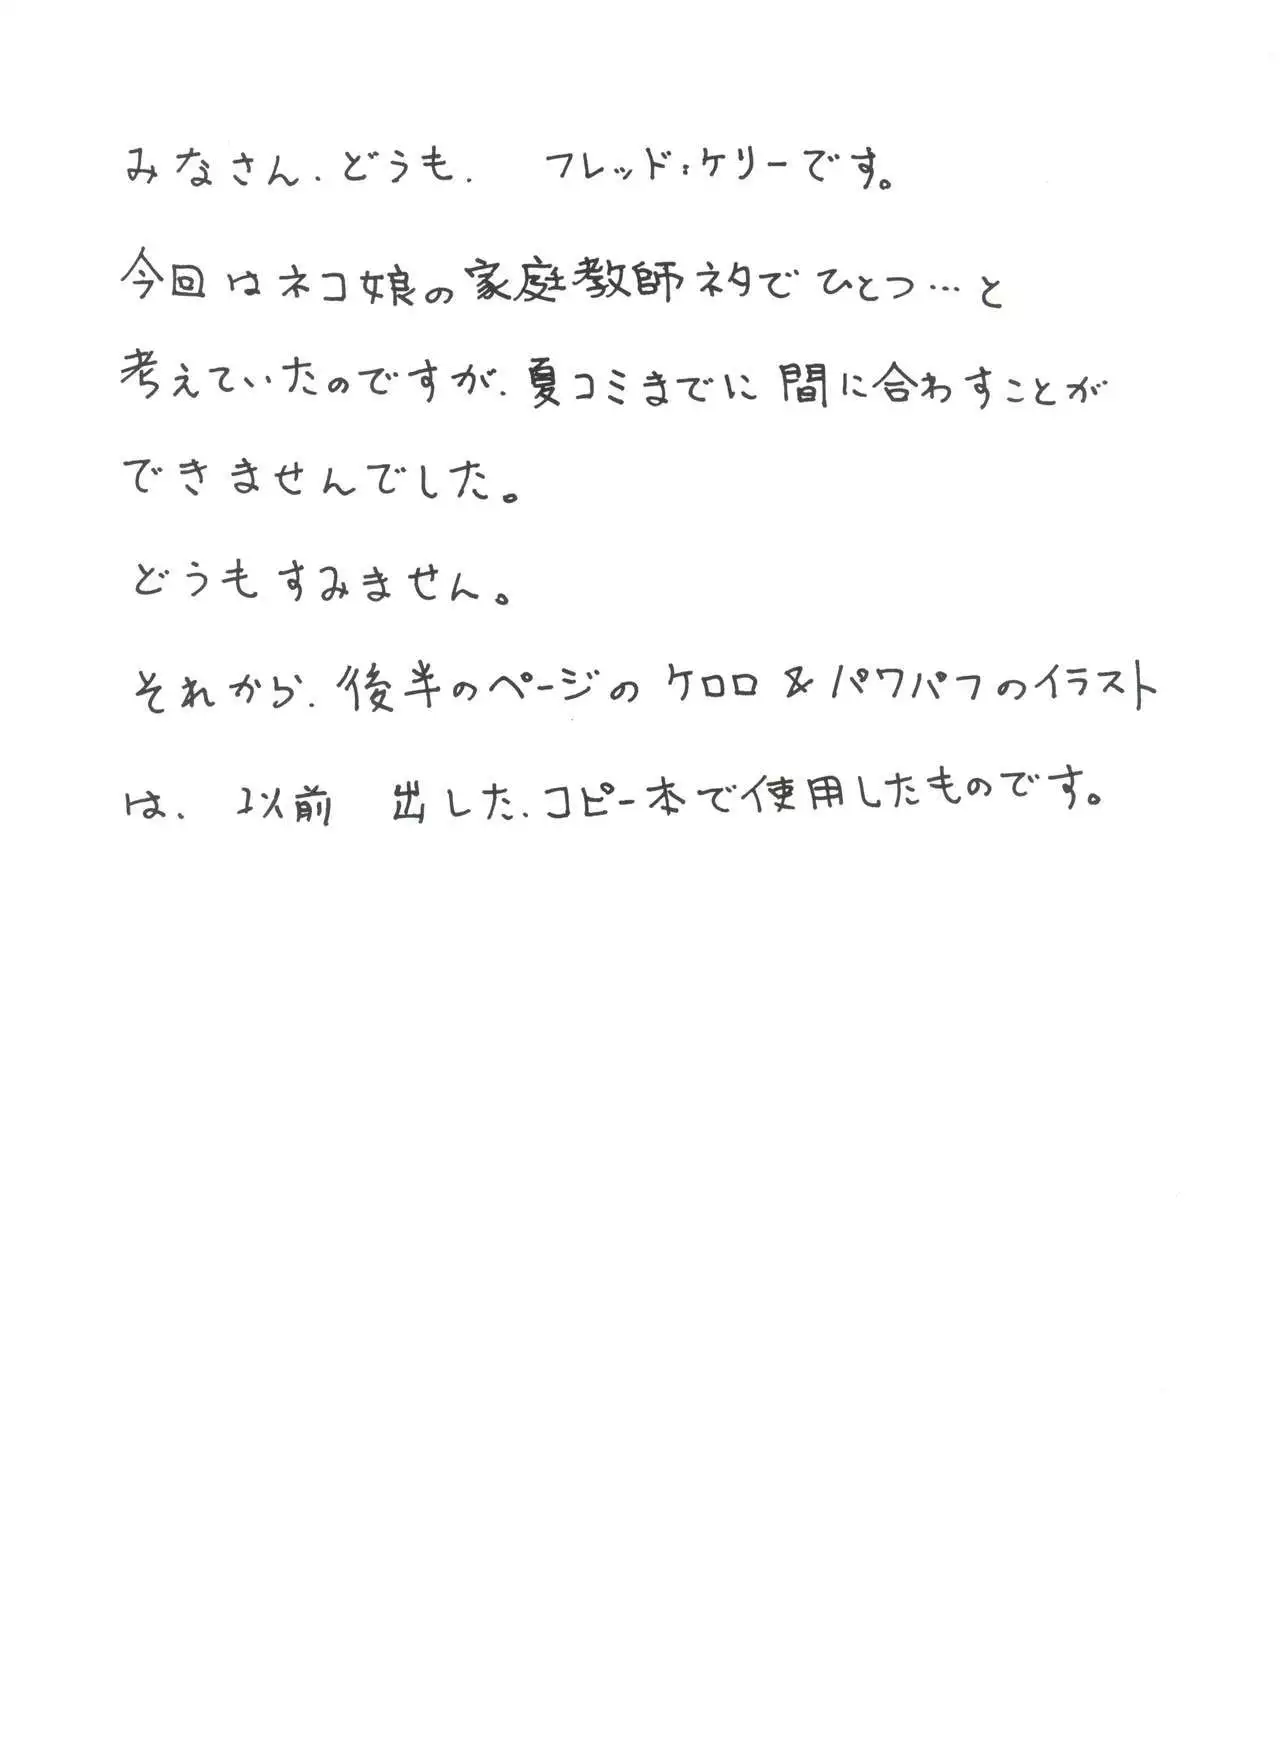 みなさん、どうも、 フレッド:ケリーです。
今回はネコ娘の家庭教師ネタでひとつ…と
考えていたのですが、夏コミまでに間に合わすことが
できませんでした。
どうもすみません。
それから、後半のページのケロロ&パワパフのイラスト
は、以前 出した、コピー本で使用したものです。